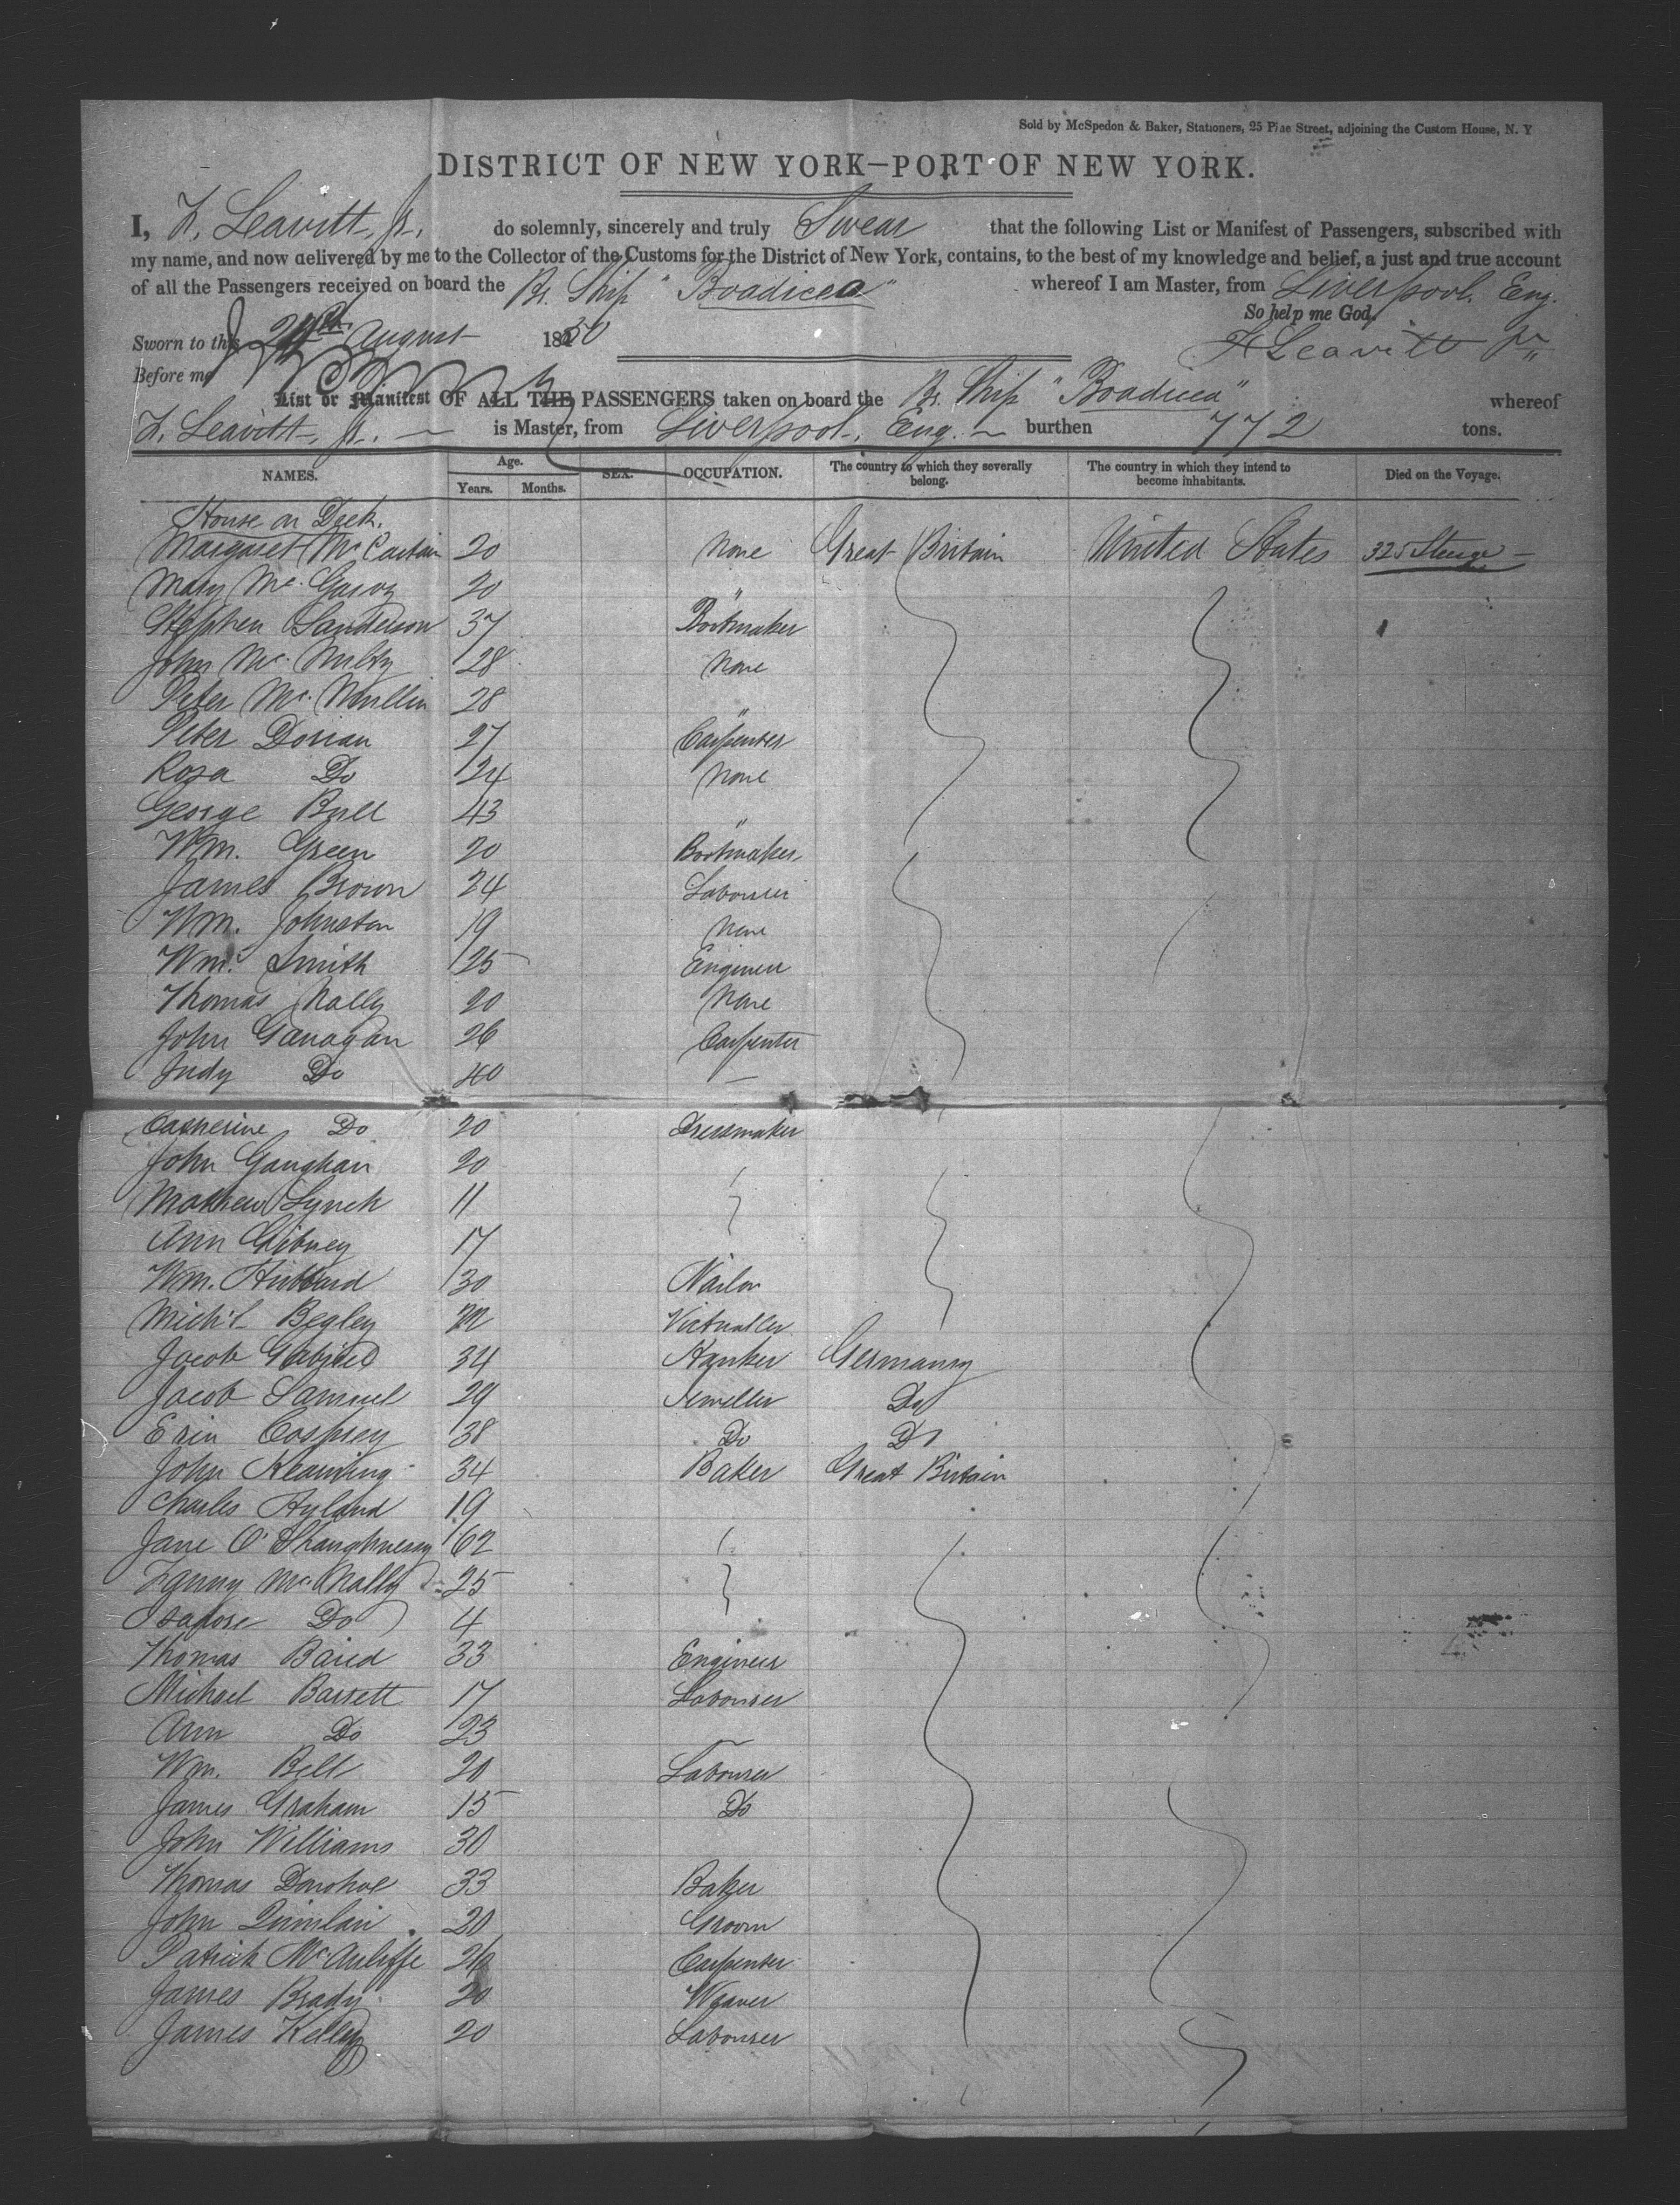 Sold by McSpedon & Baker, Stationers, 25 Pine Street, adjoining the Custom House, N. Y
DISTRICT OF NEW YORK—PORT OF NEW YORK.
I, F. Leavitt, Jr. do solemnly, sincerely and truly Swear that the following List or Manifest of Passengers, subscribed with
my name, and now delivered by me to the Collector of the Customs for the District of New York, contains, to the best of my knowledge and belief, a just and true account
of all the Passengers received on board the Br. Ship "Boadicea" whereof I am Master, from Liverpool, Eng.
So help me God,
Sworn to this August 1850
F Leavitt Jr
Before me
List or Manifest OF ALL THE PASSENGERS taken on board the Br. Ship "Boadicea" whereof
F. Leavitt, Jr. is Master, from Liverpool, Eng. burthen 772 tons.
NAMES. Age. Years. Months. SEX. OCCUPATION. The country to which they severally belong. The country in which they intend to become inhabitants. Died on the Voyage.
House on Deck.
Margaret McCartain 20 None Great Britain United States 325 Steerage
Mary Mc. Garvy 20 "
Stephen Sanderson 37 Bootmaker
John Mc. Nulty 28 None
Peter Mc. Mullin 28 "
Peter Dorian 27 Carpenter
Rosa Do 24 None
George Bull 43 "
Wm. Green 20 Bootmaker
James Brown 24 Labourer
Wm. Johnston 19 None
Wm. Smith 25 Engineer
Thomas Nally 20 None
John Ganagan 26 Carpenter
Judy Do 40 —
Catherine Do 20 Dressmaker
John Gaughan 20
Mathew Lynch 11
Ann Gibney 17
Wm. Hubbard 30 Nailor
Mich'l Begley Victualler
Jacob 34 Germany
Jacob Samuel 29 Jeweller Do
38 Do Do
John 34 Baker Great Britain
Charles Hyland 19
Jane O'Shaughnessy 62
Fanny Mc. Nally 25
Isadore Do 4
Thomas Baird 33 Engineer
Michael Barrett 17 Labourer
Ann Do 23 —
Wm. Bell 20 Labourer
James Graham 15 Do
John Williams 30
Thomas Donohoe 33 Baker
John Quinlan 20 Groom
Patrick McAuliffe 26 Carpenter
James Brady 20 Weaver
James Kelly 20 Labourer